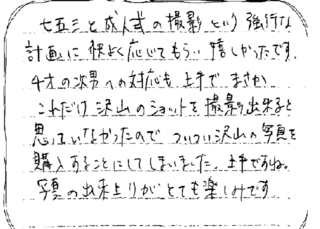 七五三と成人式の撮影という強行な
計画に快よく応じてもらい嬉しかったです。
4才の次男への対応も上手でまさか
これだけ沢山のショットを撮影出来ると
思っていなかったのでついつい沢山の写真を
購入することにしてしまいました。上手ですね。
写真の出来上りがとても楽しみです